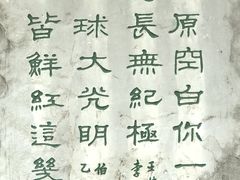 原空白你一
長無紀極
李
球大光明
柏
乙
皆鮮紅這幾